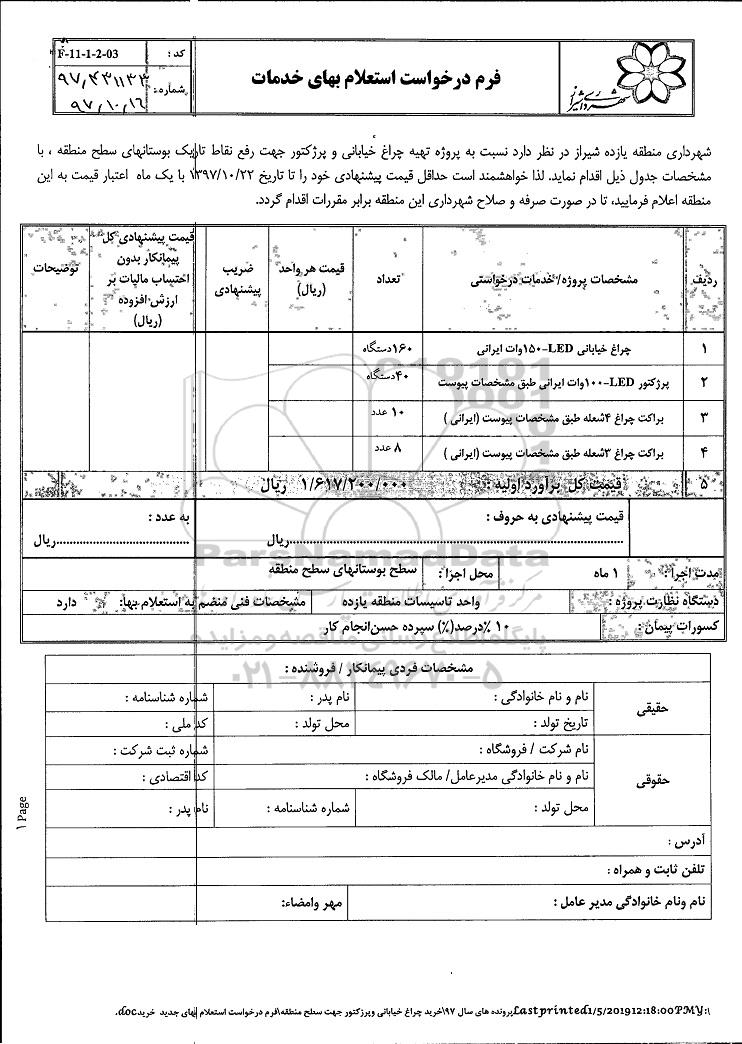 فرم درخواست استعلام بهای خدمات
کد :
F-11-1-2-03
شماره:
۹۷/۴۳۱۱۳۳
۹۷/۱۰/۱۶
شهرداری شیراز
شهرداری منطقه یازده شیراز در نظر دارد نسبت به پروژه تهیه چراغ خیابانی و پرژکتور جهت رفع نقاط تاریک بوستانهای سطح منطقه ، با
مشخصات جدول ذیل اقدام نماید. لذا خواهشمند است حداقل قیمت پیشنهادی خود را تا تاریخ ۱۳۹۷/۱۰/۲۲ با یک ماه اعتبار قیمت به این
منطقه اعلام فرمایید، تا در صورت صرفه و صلاح شهرداری این منطقه برابر مقررات اقدام گردد.
ردیف
مشخصات پروژه/ خدمات درخواستی
تعداد
قیمت هر واحد
(ریال)
ضریب
پیشنهادی
قیمت پیشنهادی کل
پیمانکار بدون
احتساب مالیات بر
ارزش افزوده
(ریال)
توضیحات
۱ چراغ خیابانی LED-۱۵۰وات ایرانی ۱۶۰دستگاه
۲ پرژکتور LED-۱۰۰وات ایرانی طبق مشخصات پیوست ۴۰دستگاه
۳ براکت چراغ ۴شعله طبق مشخصات پیوست (ایرانی ) ۱۰ عدد
۴ براکت چراغ ۳شعله طبق مشخصات پیوست (ایرانی ) ۸ عدد
۵ قیمت کل برآورد اولیه : ۱/۶۱۷/۲۰۰/۰۰۰ ریال
قیمت پیشنهادی به حروف : به عدد :
......ریال ......ریال
مدت اجرا : ۱ ماه محل اجرا : سطح بوستانهای سطح منطقه
دستگاه نظارت پروژه : واحد تاسیسات منطقه یازده مشخصات فنی منضم به استعلام بها: دارد
کسورات پیمان : ۱۰ ٪درصد(٪) سپرده حسن‌انجام کار
ParsNamadData
پایگاه اطلاع رسانی مناقصه و مزایده
۰۲۱-۸۸۳۴۹۶۷۰-۵
مشخصات فردی پیمانکار / فروشنده :
حقیقی
نام و نام خانوادگی : نام پدر : شماره شناسنامه :
تاریخ تولد : محل تولد : کد ملی :
حقوقی
نام شرکت / فروشگاه : شماره ثبت شرکت :
نام و نام خانوادگی مدیرعامل/ مالک فروشگاه : کد اقتصادی :
محل تولد : شماره شناسنامه : نام پدر :
آدرس :
تلفن ثابت و همراه :
نام ونام خانوادگی مدیر عامل : مهر وامضاء:
۱ Page
۱:\Last printed1/5/2019 12:18:00 PMYپرونده های سال ۹۷\خرید چراغ خیابانی وپرزکتور جهت سطح منطقه\فرم درخواست استعلام بهای جدید خرید.doc